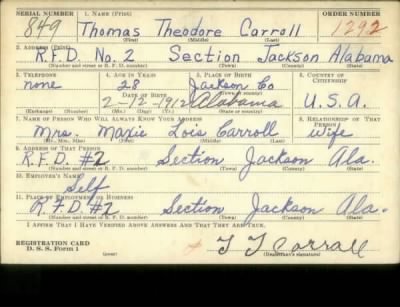 SERIAL NUMBER 1. NAME (Print) ORDER NUMBER
849 Thomas Theodore Carroll 1292
(First) (Middle) (Last)
2. ADDRESS (Print)
R.F.D. No. 2 Section Jackson Alabama
(Number and street or R. F. D. number) (Town) (County) (State)
3. TELEPHONE 4. AGE IN YEARS 5. PLACE OF BIRTH 6. COUNTRY OF CITIZENSHIP
none 28 Jackson Co U.S.A.
(Town or county)
DATE OF BIRTH
2-12-1912 Alabama
(Exchange) (Number) (Mo.) (Day) (Yr.) (State or country)
7. NAME OF PERSON WHO WILL ALWAYS KNOW YOUR ADDRESS 8. RELATIONSHIP OF THAT PERSON
Mrs. Maxie Lois Carroll wife
(Mr., Mrs., Miss) (First) (Middle) (Last)
9. ADDRESS OF THAT PERSON
R.F.D. #2 Section Jackson Ala.
(Number and street or R. F. D. number) (Town) (County) (State)
10. EMPLOYER'S NAME
Self
11. PLACE OF EMPLOYMENT OR BUSINESS
R.F.D. #2 Section Jackson Ala.
(Number and street or R. F. D. number) (Town) (County) (State)
I AFFIRM THAT I HAVE VERIFIED ABOVE ANSWERS AND THAT THEY ARE TRUE.
REGISTRATION CARD
D. S. S. Form 1 (over) T T Carroll
(Registrant's signature)